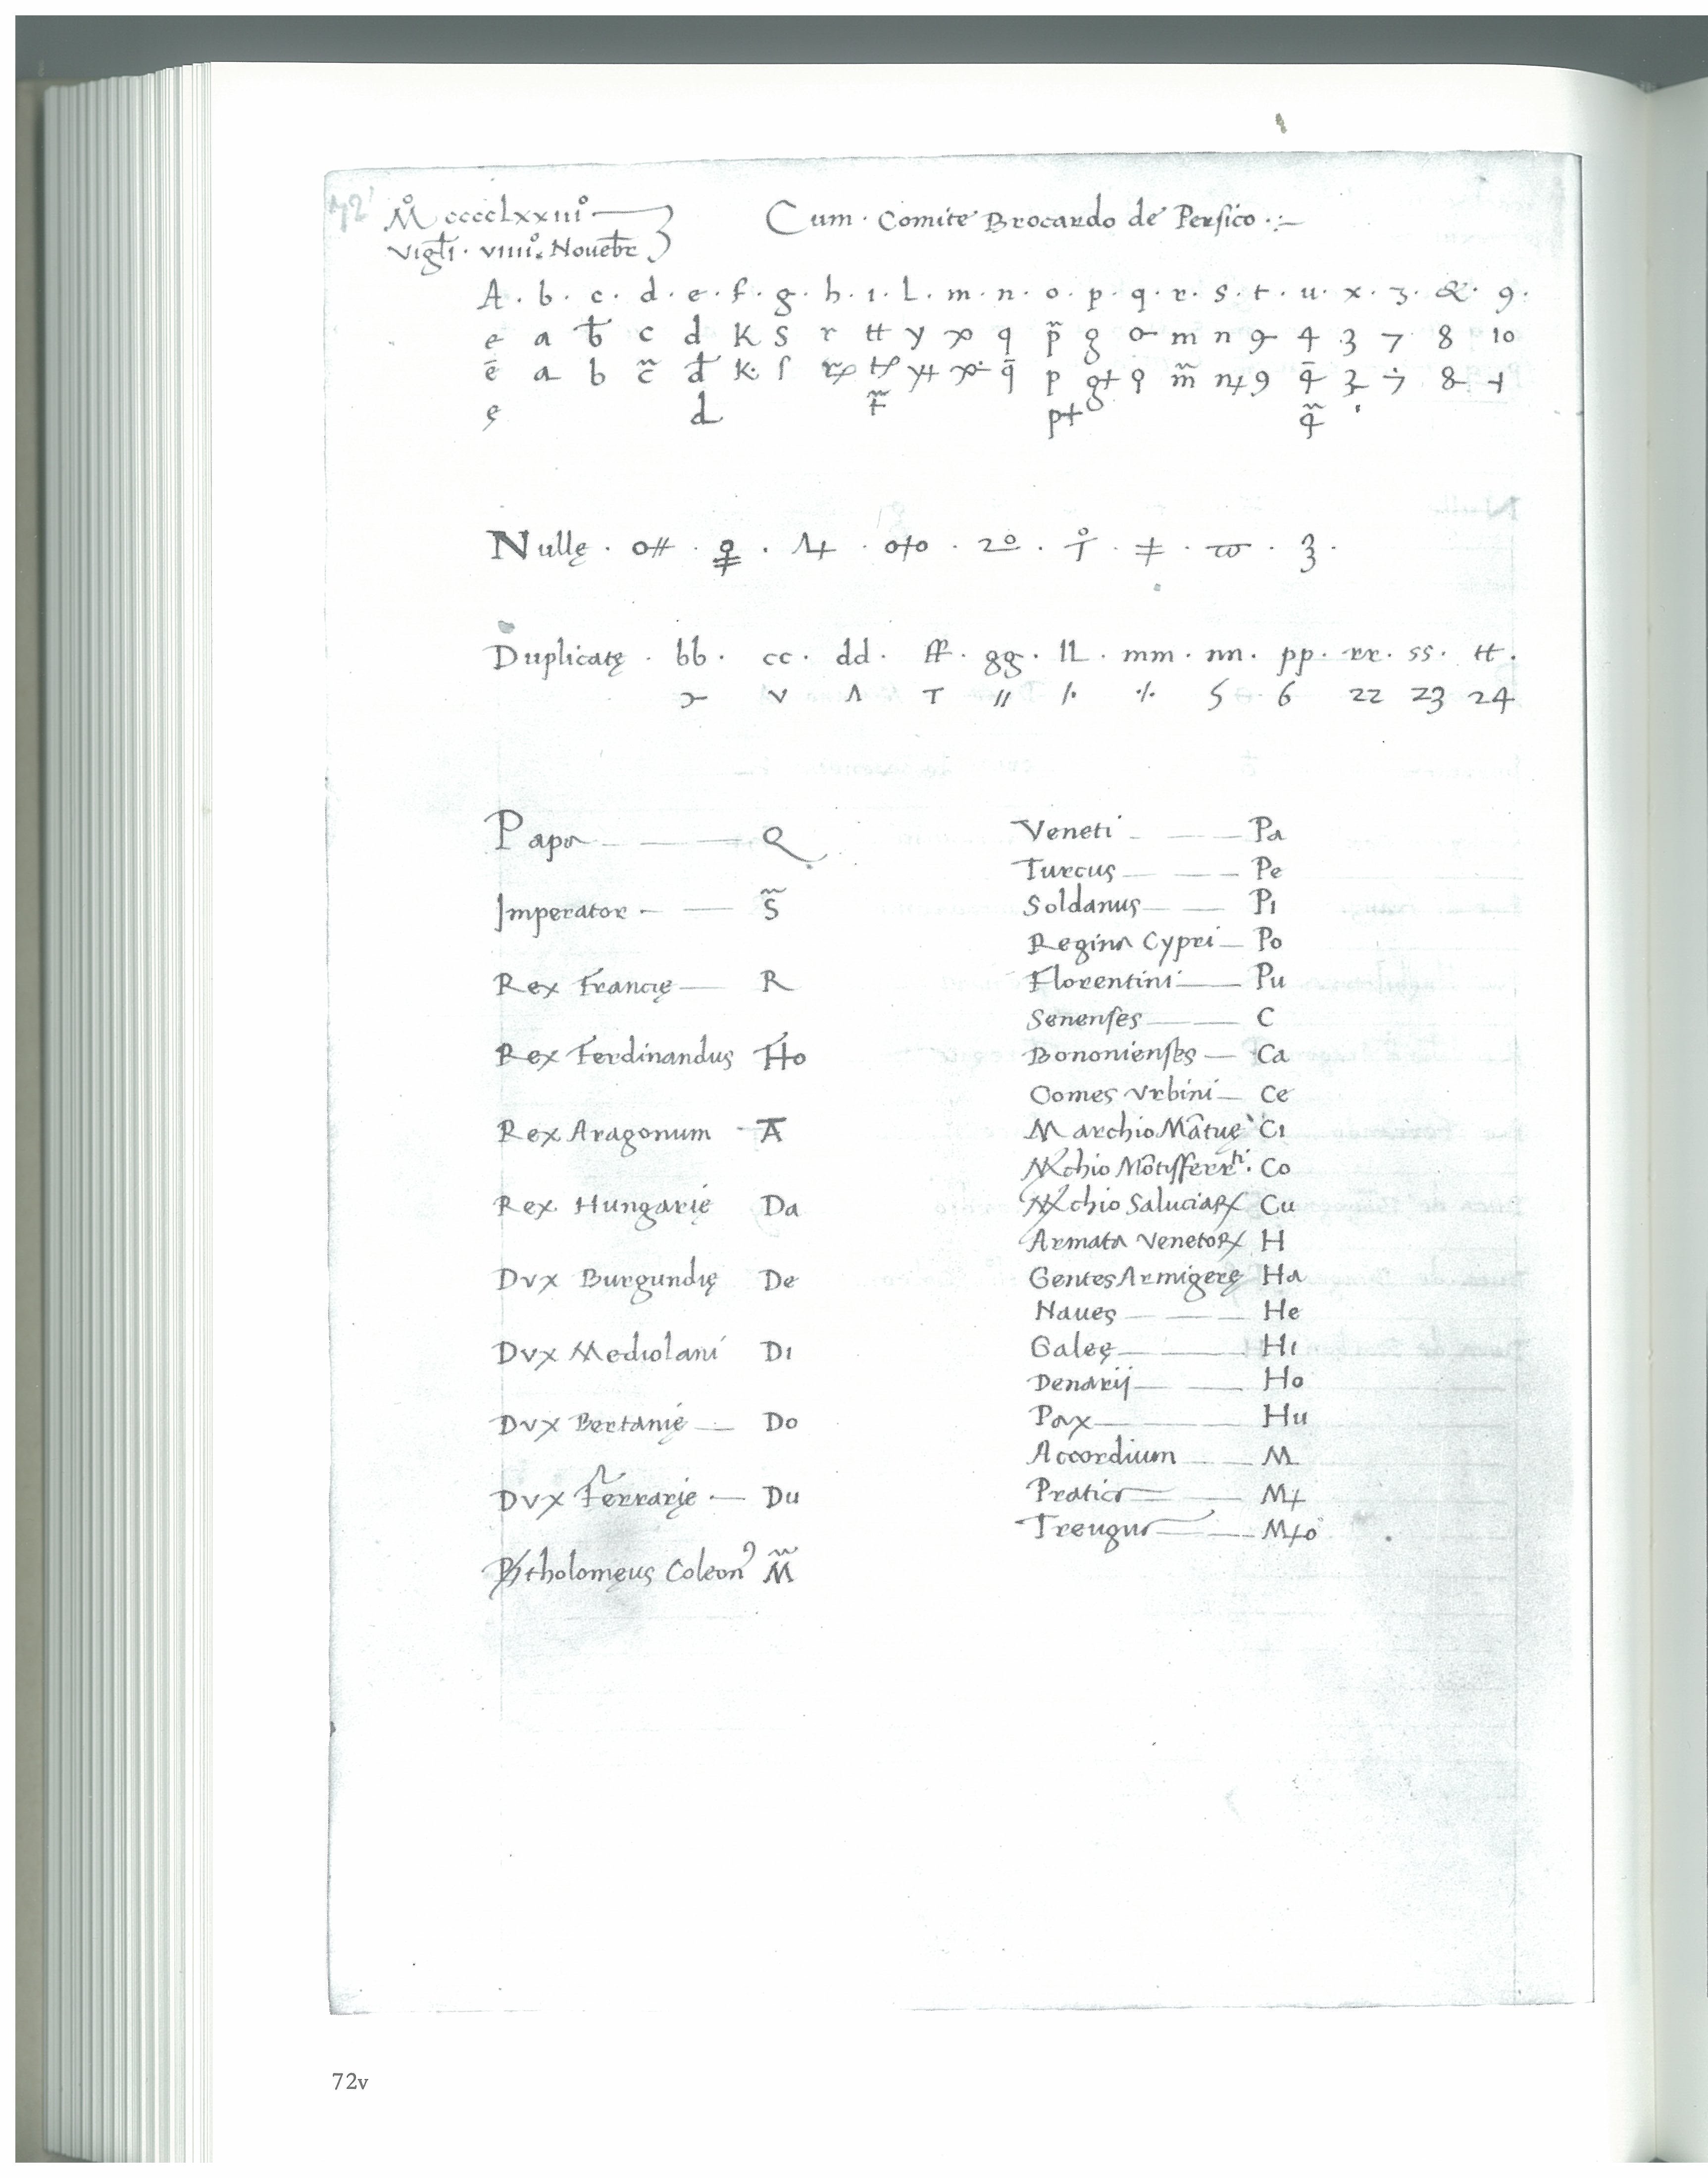 72'
M° ccccLxxiii°
Vigłi · viiii° Nouēbr
Cum · Comite Brocardo de Persico ·:~
A · b · c · d · e · f · g · h · i · L · m · n · o · p · q · r · s · t · u · x · z · & · 9 ·
e a c d K S r tt y q p̃ g m n 9 4 3 7 8 10
ē a b c̃ K· ſ q̄ p g+ m̃ 9 8
ę d pt
Nullę ·
Duplicatę · bb · cc · dd · ff · gg · lL · mm · nn · pp · rr · ss · tt ·
v Λ T // /· ·/· 5 6 22 23 24
Papa Q
Imperator S̃
Rex Francię R
Rex Ferdinandus Ho
Rex Aragonum Ā
Rex Hungarię Da
Dvx Burgundię De
Dvx Mediolani Di
Dvx Bertanię Do
Dvx Ferrarię Du
Bartholomęus Coleon9 M̃
Veneti Pa
Turcus Pe
Soldanus Pi
Regina Cypri Po
Florentini Pu
Senenses C
Bononienses Ca
Comes Vrbini Ce
Marchio Mātuę Ci
Mchio Mōtisferrti · Co
Mchio Saluciaꝝ Cu
Armata Venetoꝝ H
Gentes Armigerę Ha
Naues He
Galeę Hi
Denarij Ho
Pax Hu
Accordium M
Pratica M+
Treugua M+o
72v